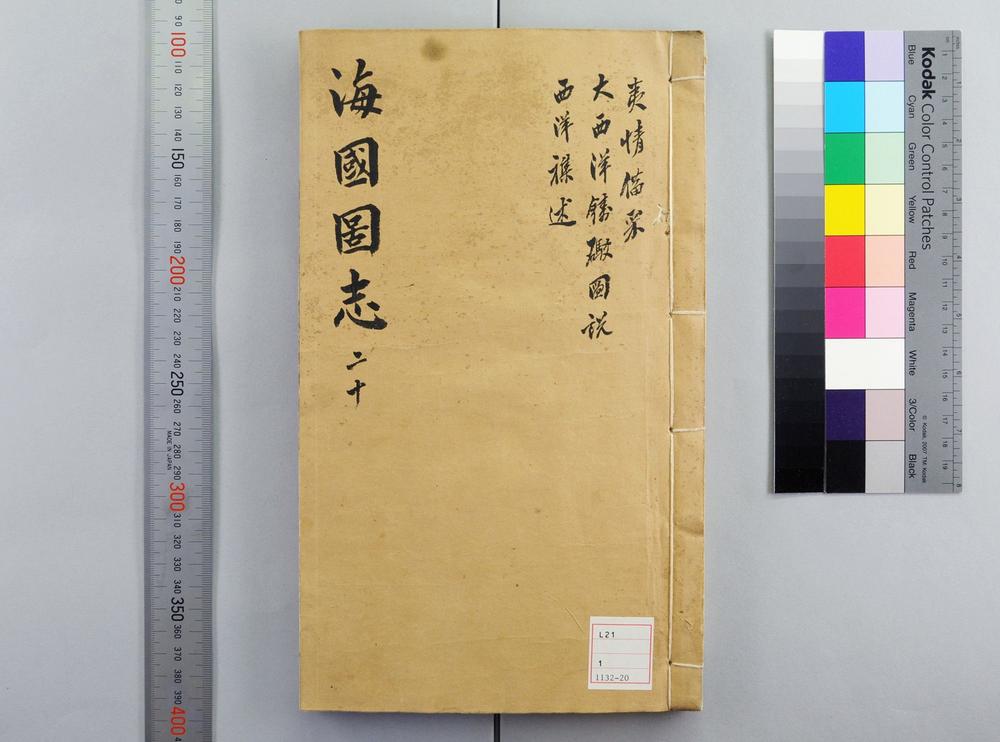 海國圖志 二十
夷情備采
大西洋鑄礮圖説
西洋襍述
L21
1
1132-20
90
100
110
120
130
140
150
160
170
180
190
200
210
220
230
240
250
260
270
280
290
300
310
320
330
340
350
360
370
380
390
400
MADE IN JAPAN
Kodak Color Control Patches
Blue
Cyan
Green
Yellow
Red
Magenta
White
3/Color
Black
© Kodak, 2007 TM: Kodak